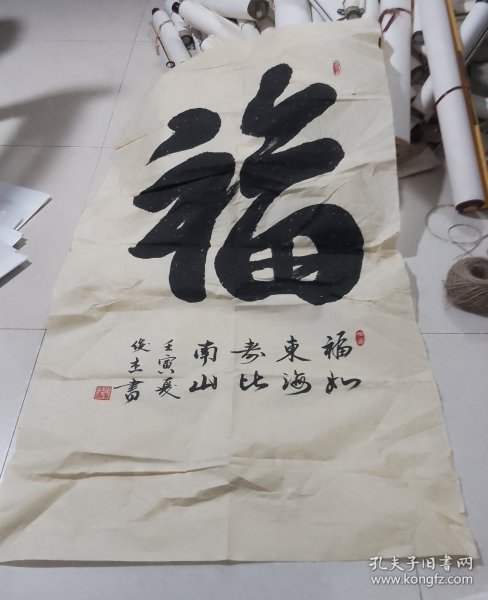 福
福如
東海
壽比
南山
壬寅夏
俊杰書
孔夫子旧书网
www.kongfz.com